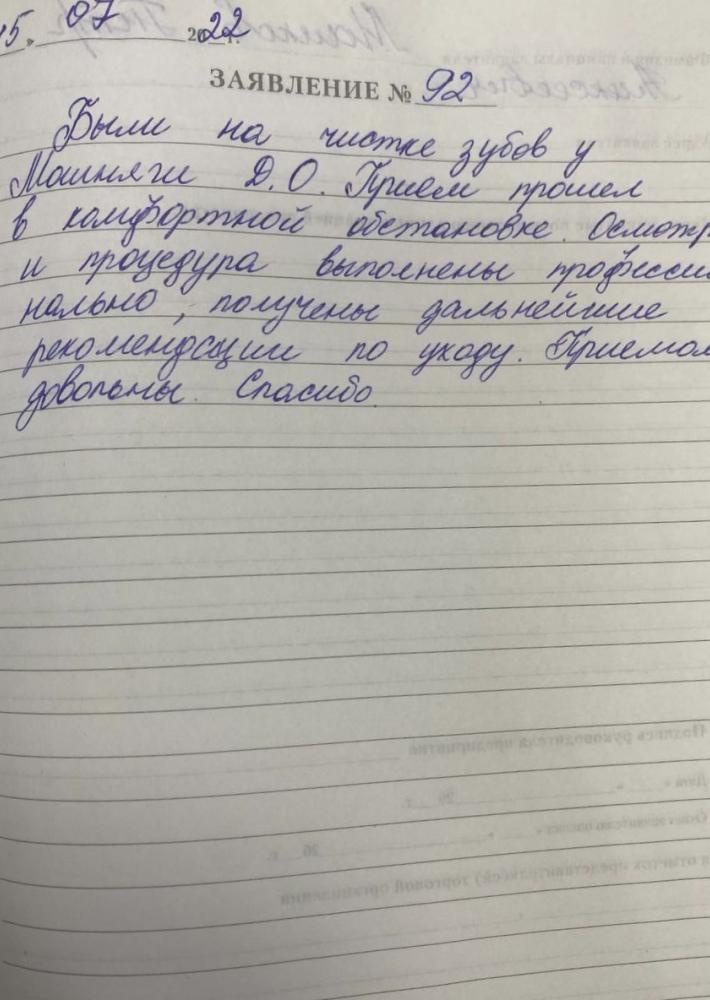 15 » 07 2022 г.
ЗАЯВЛЕНИЕ № 92
Были на чистке зубов у
Машняги Д.О. Прием прошел
в комфортной обстановке. Осмотр
и процедура выполнены профессио
нально, получены дальнейшие
рекомендации по уходу. Приемом
довольны. Спасибо